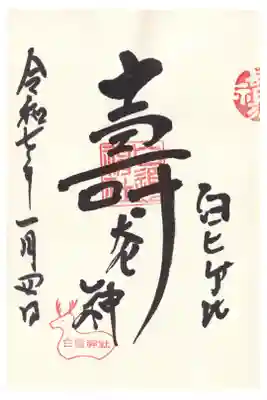 白ヒゲ
壽老神
令和七年一月四日
白鬚神社